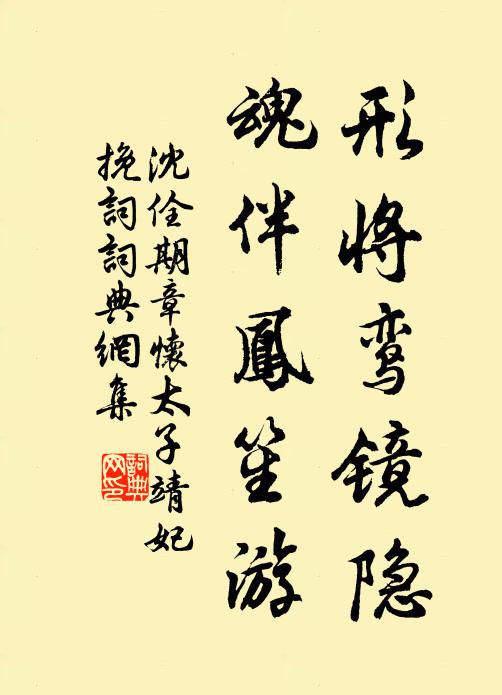 形将鸾镜隐
魂伴鳳笙游
沈佺期章懷太子靖妃
挽詞詞典網集
詞典网印